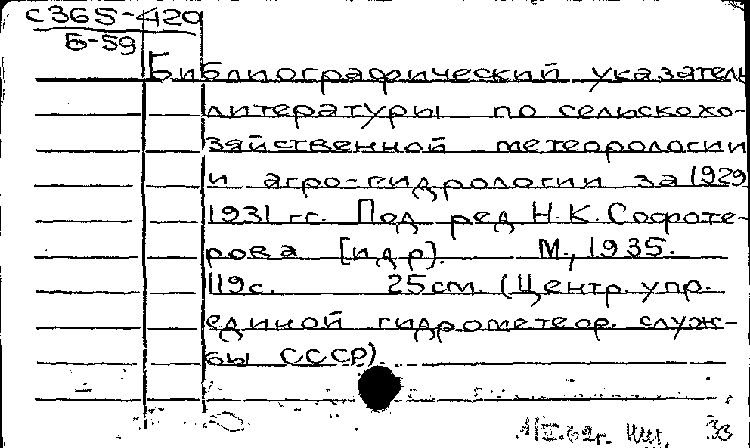 С365-429
Б-59
Библиографический указатель
литературы по сельскохо-
зяйственной метеорологии
и агро-гидрологии за 1929
1931 гг. Под ред Н.К. Софоте-
рова [и др]. М., 1935.
119с. 25см. (Центр. упр.
единой гидрометеор. служ-
бы СССР).
62г.